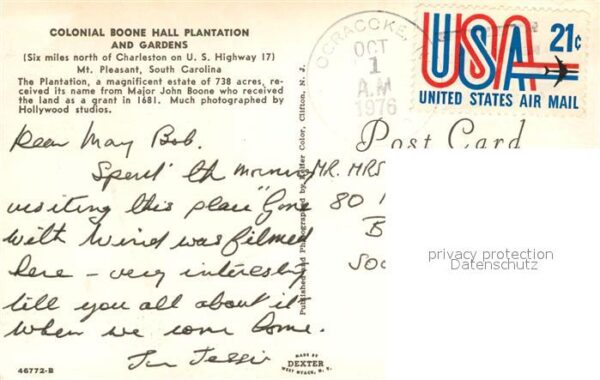 COLONIAL BOONE HALL PLANTATION
AND GARDENS
(Six miles north of Charleston on U. S. Highway 17)
Mt. Pleasant, South Carolina
The Plantation, a magnificent estate of 738 acres, re-
ceived its name from Major John Boone who received
the land as a grant in 1681. Much photographed by
Hollywood studios.
Dear May Bob.
Spent th morning
visiting this place "Gone
With Wind was filmed
here - very interesting
tell you all about it
when we come home.
Jessie
46772-B
MADE BY
DEXTER
WEST NYACK, N. Y.
Published and Photographed by Color, Clifton, N. J.
OCRACOKE,
OCT
1
A.M
1976
USA 21¢
UNITED STATES AIR MAIL
Post Card
MR. MRS
80
B
SO
privacy protection
Datenschutz